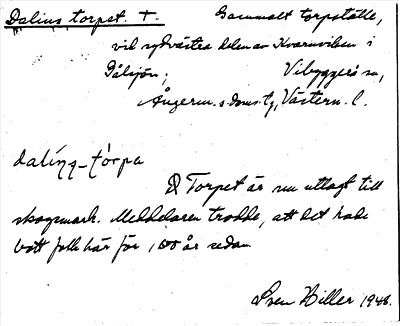 Dalins torpet. †. Gammalt torpställe,
vid sydvästra delen av Kvarnviken i
Gålsjön; Vibyggerå sn,
Ångerm. s. doms. tg, Västern. l.
dalíŋ̣-tórpa
Torpet är nu utlagt till
skogsmark. Meddelaren trodde, att det hade
bott folk här för 100 år sedan
Sven Hiller 1946.